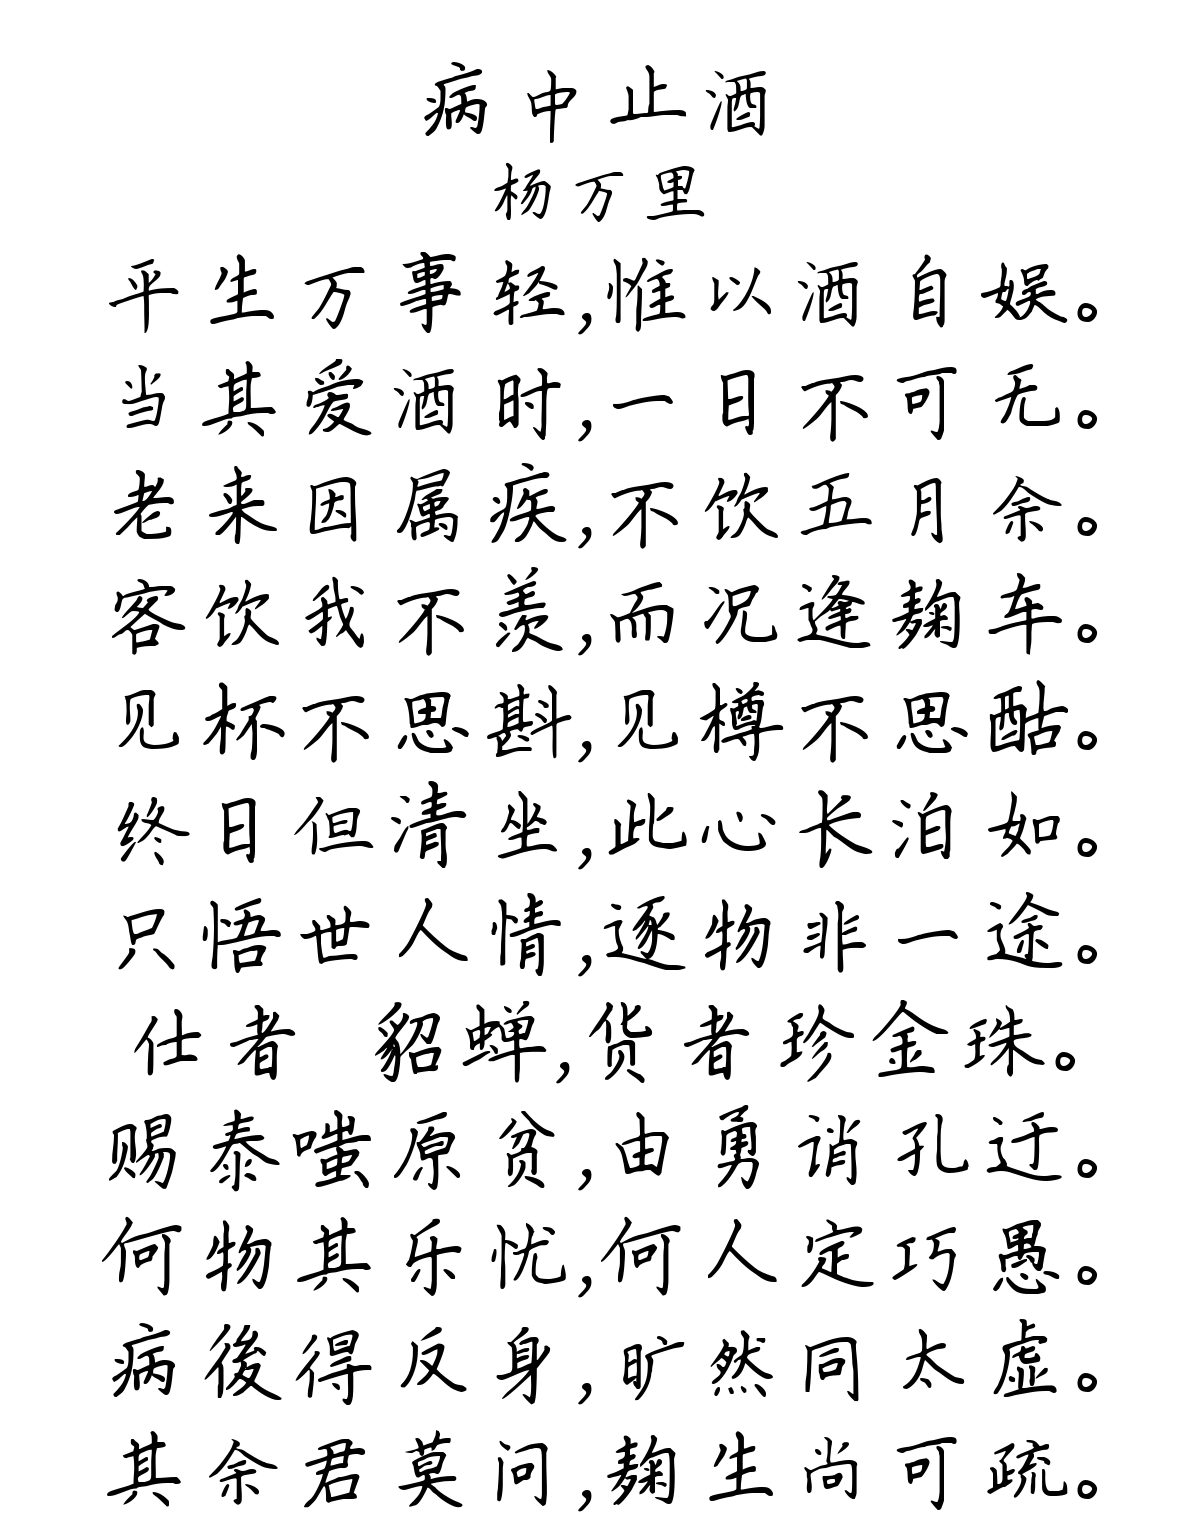 病中止酒
杨万里
平生万事轻,惟以酒自娱。
当其爱酒时,一日不可无。
老来因属疾,不饮五月余。
客饮我不羡,而况逢麹车。
见杯不思斟,见樽不思酤。
终日但清坐,此心长泊如。
只悟世人情,逐物非一途。
仕者 貂蝉,货者珍金珠。
赐泰嗤原贫,由勇诮孔迂。
何物其乐忧,何人定巧愚。
病後得反身,旷然同太虚。
其余君莫问,麹生尚可疏。